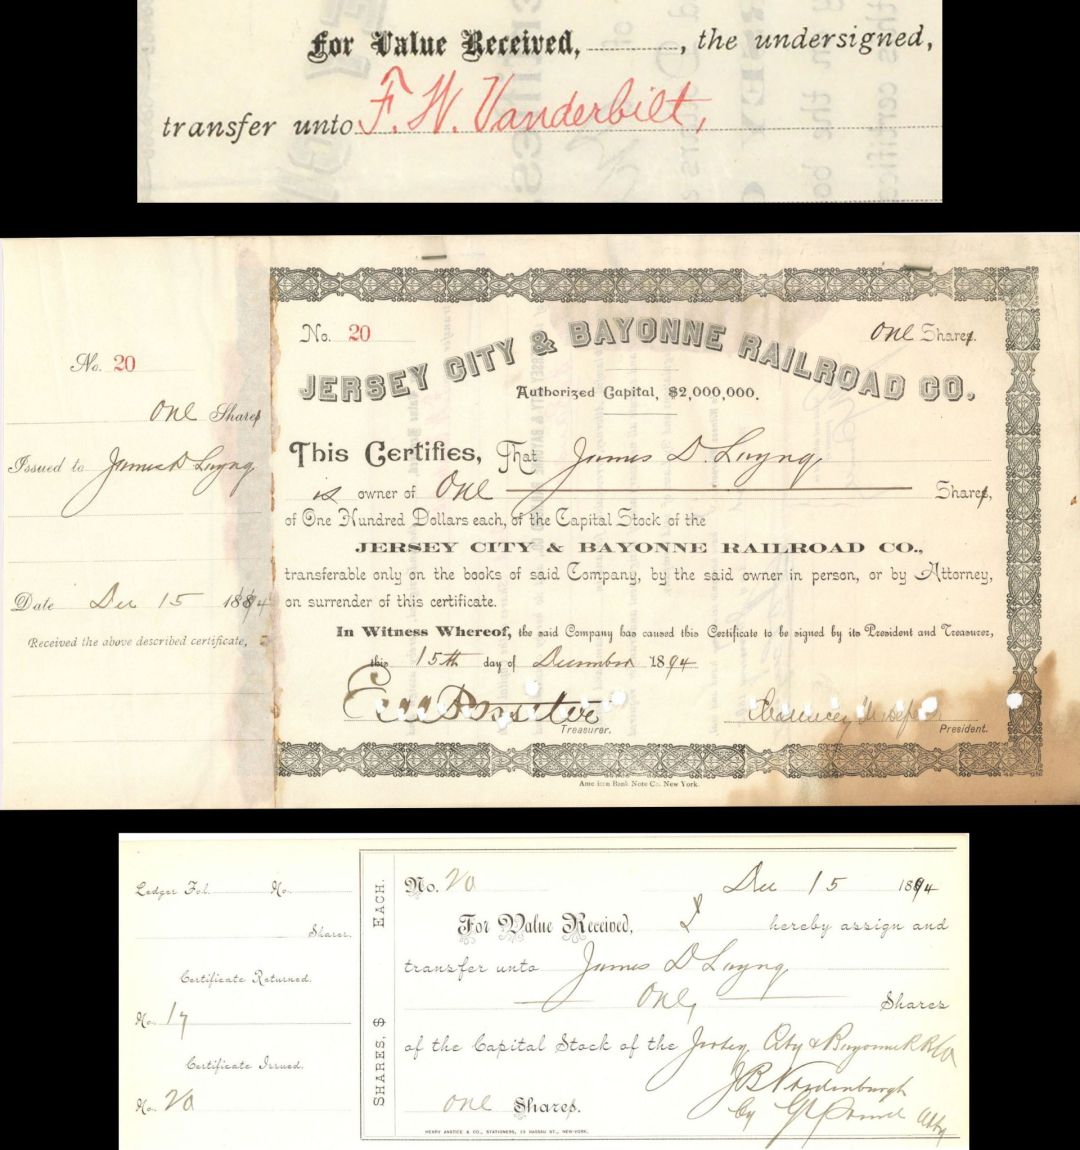 For Value Received, , the undersigned,
transfer unto F. W. Vanderbilt,
No. 20
one Shares
Issued to James D Layng
Date Dec 15 1894
Received the above described certificate,
No. 20
one Shares.
JERSEY CITY & BAYONNE RAILROAD CO.
Authorized Capital, $2,000,000.
This Certifies, That James D. Layng
is owner of One Shares,
of One Hundred Dollars each, of the Capital Stock of the
JERSEY CITY & BAYONNE RAILROAD CO.,
transferable only on the books of said Company, by the said owner in person, or by Attorney,
on surrender of this certificate.
In Witness Whereof, the said Company has caused this Certificate to be signed by its President and Treasurer,
this 15th day of December 1894
Treasurer.
President.
American Bank Note Co. New York.
Ledger Fol. No.
Shares.
Certificate Returned.
No. 17
Certificate Issued.
No. 20
SHARES, $ EACH.
No. 20
Dec 15 1894
For Value Received, I hereby assign and
transfer unto James D Layng
One, Shares
of the Capital Stock of the Jersey City & Bayonne R R Co
J B Vredenburgh
one Shares.
by Atty
HENRY ANSTICE & CO., STATIONERS, 23 NASSAU ST., NEW-YORK.